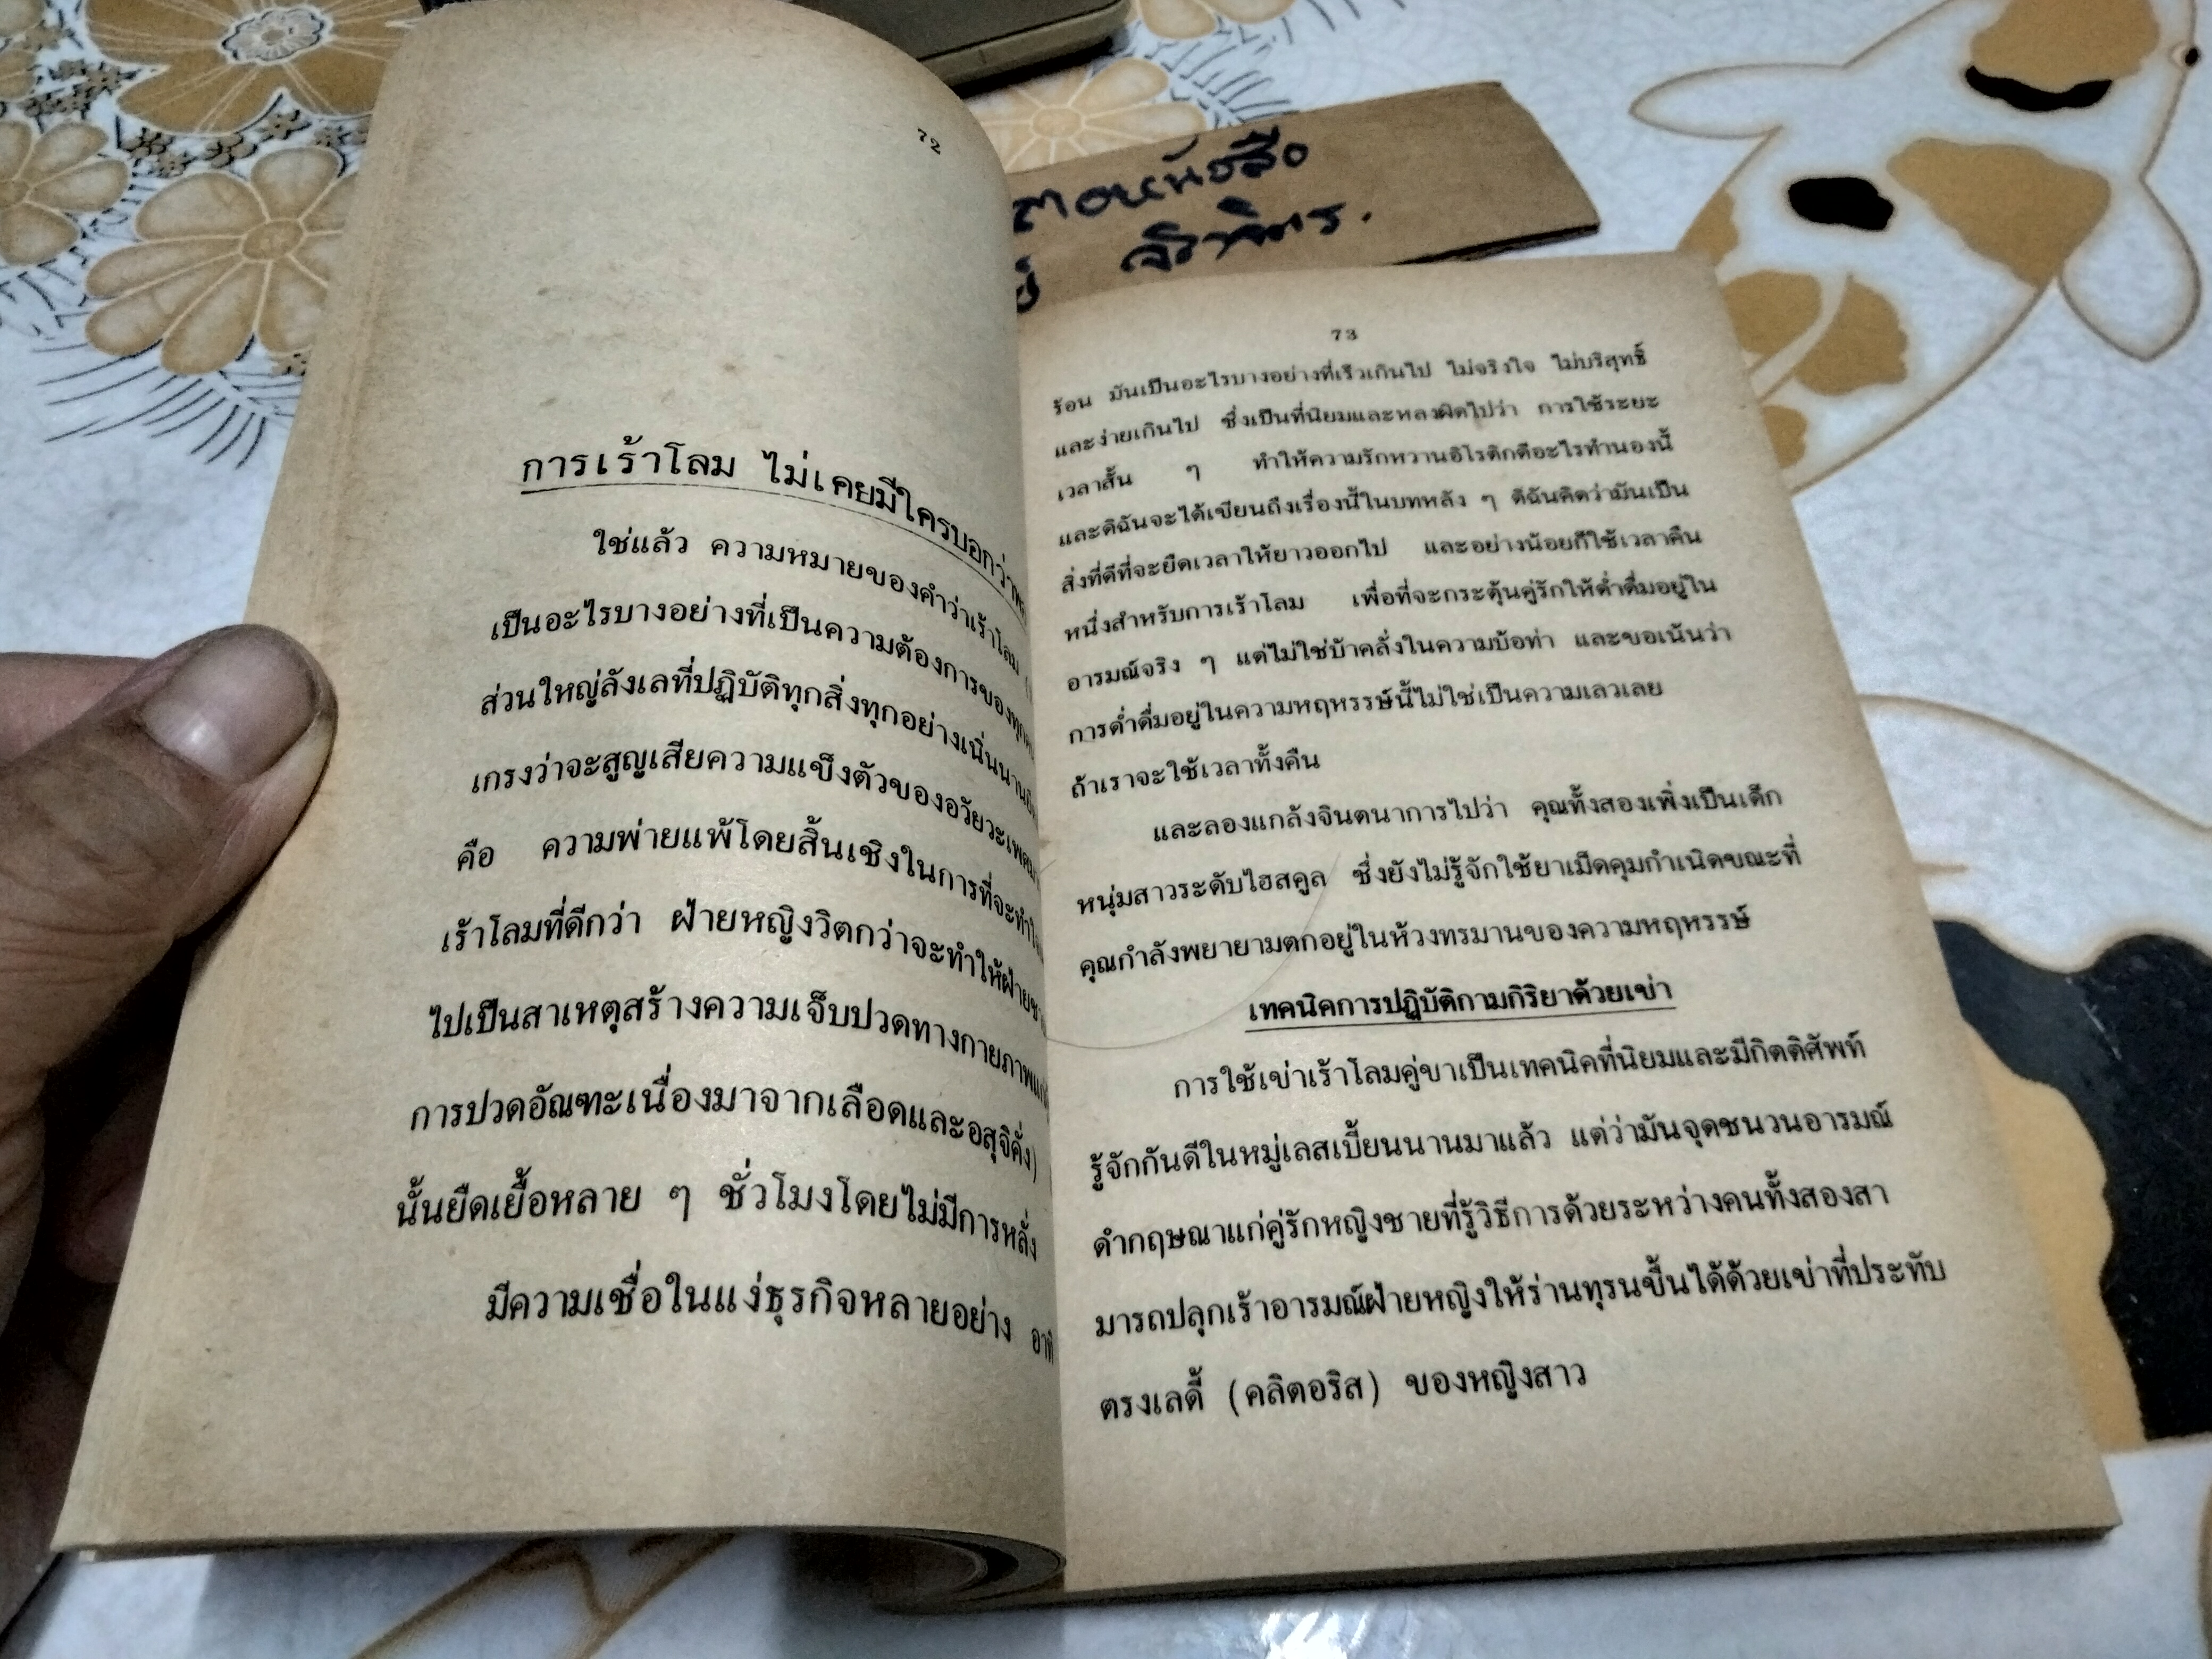 72
การเร้าโลม ไม่เคยมีใครบอกว่า
ใช่แล้ว ความหมายของคำว่าเร้าโลม
เป็นอะไรบางอย่างที่เป็นความต้องการของทุก
ส่วนใหญ่ลังเลที่ปฏิบัติทุกสิ่งทุกอย่างเนิ่นนาน
เกรงว่าจะสูญเสียความแข็งตัวของอวัยวะเพศ
คือ ความพ่ายแพ้โดยสิ้นเชิงในการที่จะทำ
เร้าโลมที่ดีกว่า ฝ่ายหญิงวิตกว่าจะทำให้ฝ่าย
ไปเป็นสาเหตุสร้างความเจ็บปวดทางกายภาพ
การปวดอัณฑะเนื่องมาจากเลือดและอสุจิคั่ง)
นั้นยืดเยื้อหลาย ๆ ชั่วโมงโดยไม่มีการหลั่ง
มีความเชื่อในแง่ธุรกิจหลายอย่าง
ตอนหนังสือ
73
ร้อน มันเป็นอะไรบางอย่างที่เร็วเกินไป ไม่จริงใจ ไม่บริสุทธิ์
และง่ายเกินไป ซึ่งเป็นที่นิยมและหลงผิดไปว่า การใช้ระยะ
เวลาสั้น ๆ ทำให้ความรักหวานอีโรติกดีอะไรทำนองนี้
และดิฉันจะได้เขียนถึงเรื่องนี้ในบทหลัง ๆ ดิฉันคิดว่ามันเป็น
สิ่งที่ดีที่จะยืดเวลาให้ยาวออกไป และอย่างน้อยก็ใช้เวลาคืน
หนึ่งสำหรับการเร้าโลม เพื่อที่จะกระตุ้นคู่รักให้ด่ำดื่มอยู่ใน
อารมณ์จริง ๆ แต่ไม่ใช่บ้าคลั่งในความบ้อท่า และขอเน้นว่า
การด่ำดื่มอยู่ในความหฤหรรษ์นี้ไม่ใช่เป็นความเลวเลย
ถ้าเราจะใช้เวลาทั้งคืน
และลองแกล้งจินตนาการไปว่า คุณทั้งสองเพิ่งเป็นเด็ก
หนุ่มสาวระดับไฮสคูล ซึ่งยังไม่รู้จักใช้ยาเม็ดคุมกำเนิดขณะที่
คุณกำลังพยายามตกอยู่ในห้วงทรมานของความหฤหรรษ์
เทคนิคการปฏิบัติกามกิริยาด้วยเข่า
การใช้เข่าเร้าโลมคู่ขาเป็นเทคนิคที่นิยมและมีกิตติศัพท์
รู้จักกันดีในหมู่เลสเบี้ยนนานมาแล้ว แต่ว่ามันจุดชนวนอารมณ์
ดำกฤษณาแก่คู่รักหญิงชายที่รู้วิธีการด้วยระหว่างคนทั้งสองสา
มารถปลุกเร้าอารมณ์ฝ่ายหญิงให้ร่านทุรนขึ้นได้ด้วยเข่าที่ประทับ
ตรงเลดี้ (คลิตอริส) ของหญิงสาว